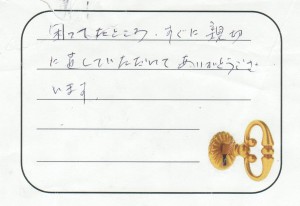 困ってたところ、すぐに親切
に直していただいてありがとうござ
います。